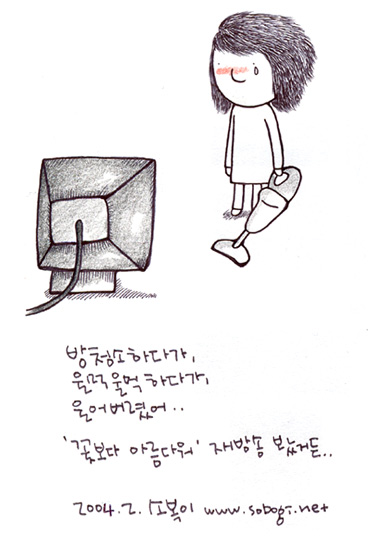 방청소하다가,
울먹울먹하다가,
울어버렸어..
'꽃보다 아름다워' 재방송 봤거든..
2004.2. 소복이 www.sobogi.net